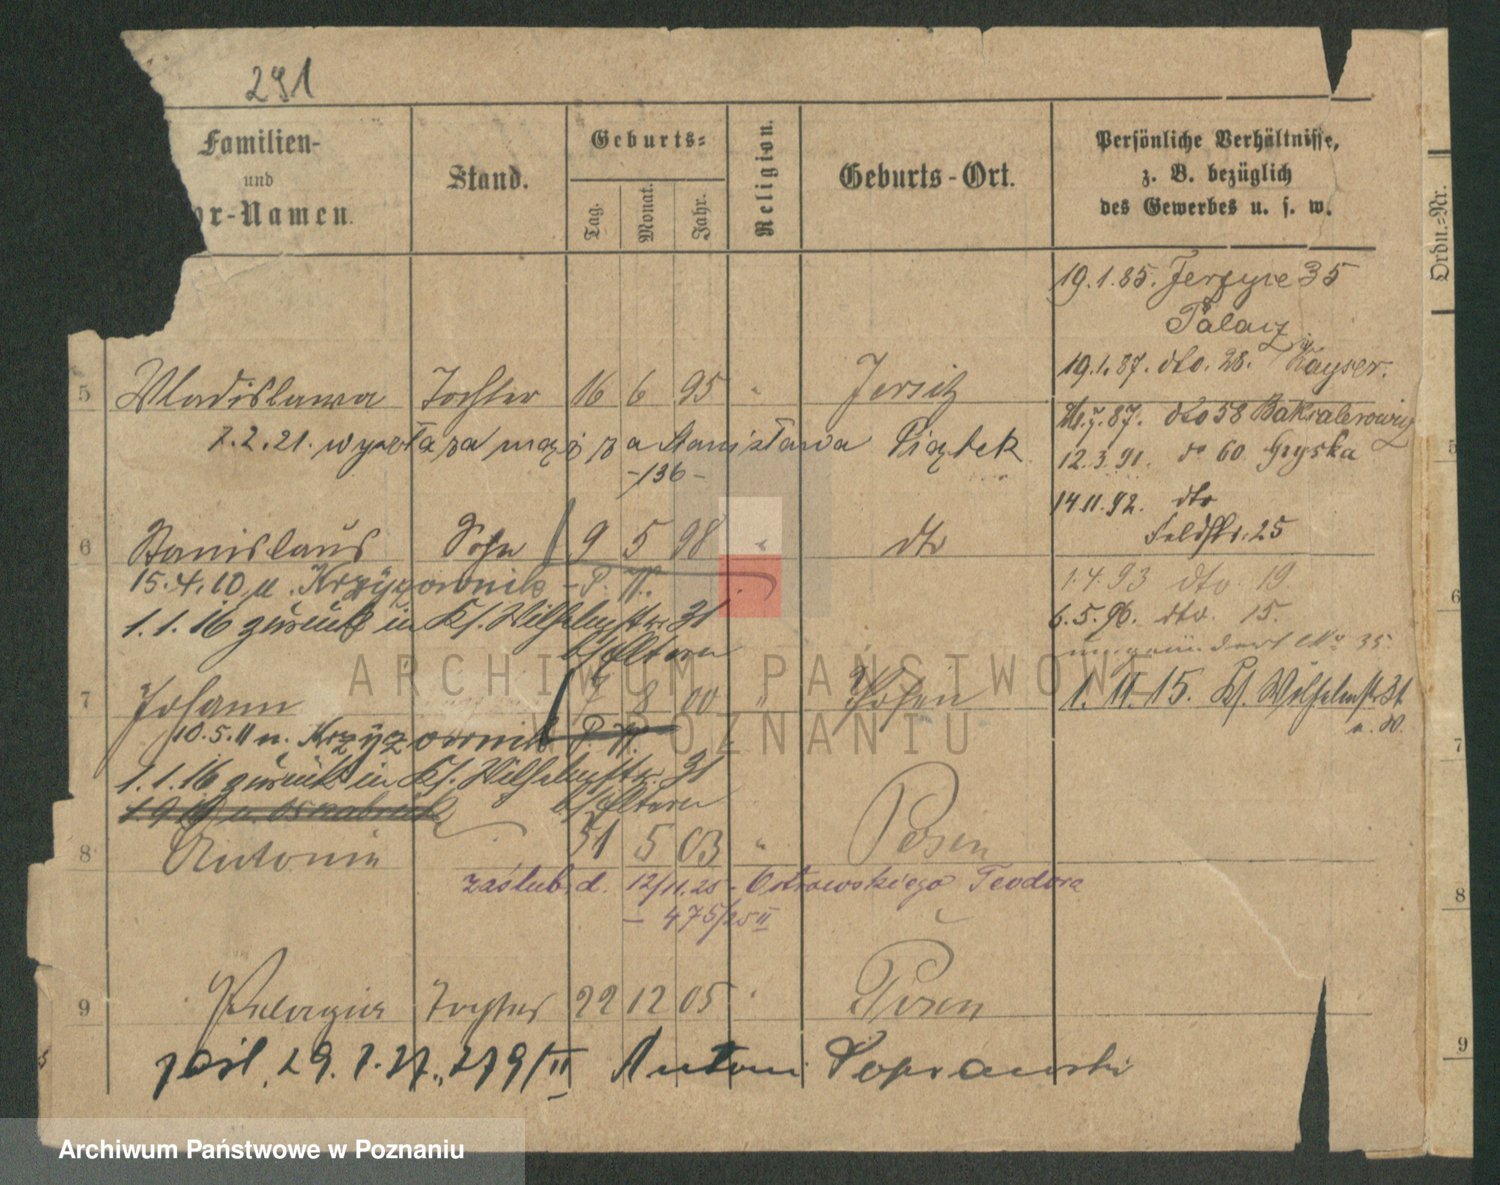 291
Familien-
und
or-Namen.
Stand.
Geburts-
Tag.
Monat.
Jahr.
Religion.
Geburts-Ort.
Persönliche Verhältnisse,
z. B. bezüglich
des Gewerbes u. s. w.
Ordn.-Nr.
19.1.85. Jerzyce 35
Palacz
19.1.87. dto. 28. Kayser.
5 Wladislawa Tochter 16 6 95 " Jersitz
87. dto 58
7.2.21. wyszła za mąż za Stanisława Piątek
-136-
12.3.91. do 60 Gryska
14.11.92. dto
Feldstr. 25
6 Stanislaus Sohn 9 5 98 " dto
15.4.10 n. Krzyżownik - P. W.
1.4.93 dto 19
1.1.16 zurück in Kl. Wilhelmstr. 31
b/Eltern
6.5.96. dto. 15.
umgeändert No 35
7 Johann 7 8 00 " Posen
1.11.15. Kl. Wilhelmstr. 31
10.5.11 n. Krzyżownik P. W.
1.1.16 zurück in Kl. Wilhelmstr. 31
b/Eltern
n. Osnabrück
8 Antonie 31 5 03 " Posen
zaślub. d. 12/11.25 - Ostrowskiego Teodora
- 475/25 II
9 Pelagia Tochter 22 12 05 " Posen
zaśl. 29. 7. 27., 279/II Antoni Poprawski
5
6
7
8
9
ARCHIWUM PAŃSTWOWE
W POZNANIU
Archiwum Państwowe w Poznaniu